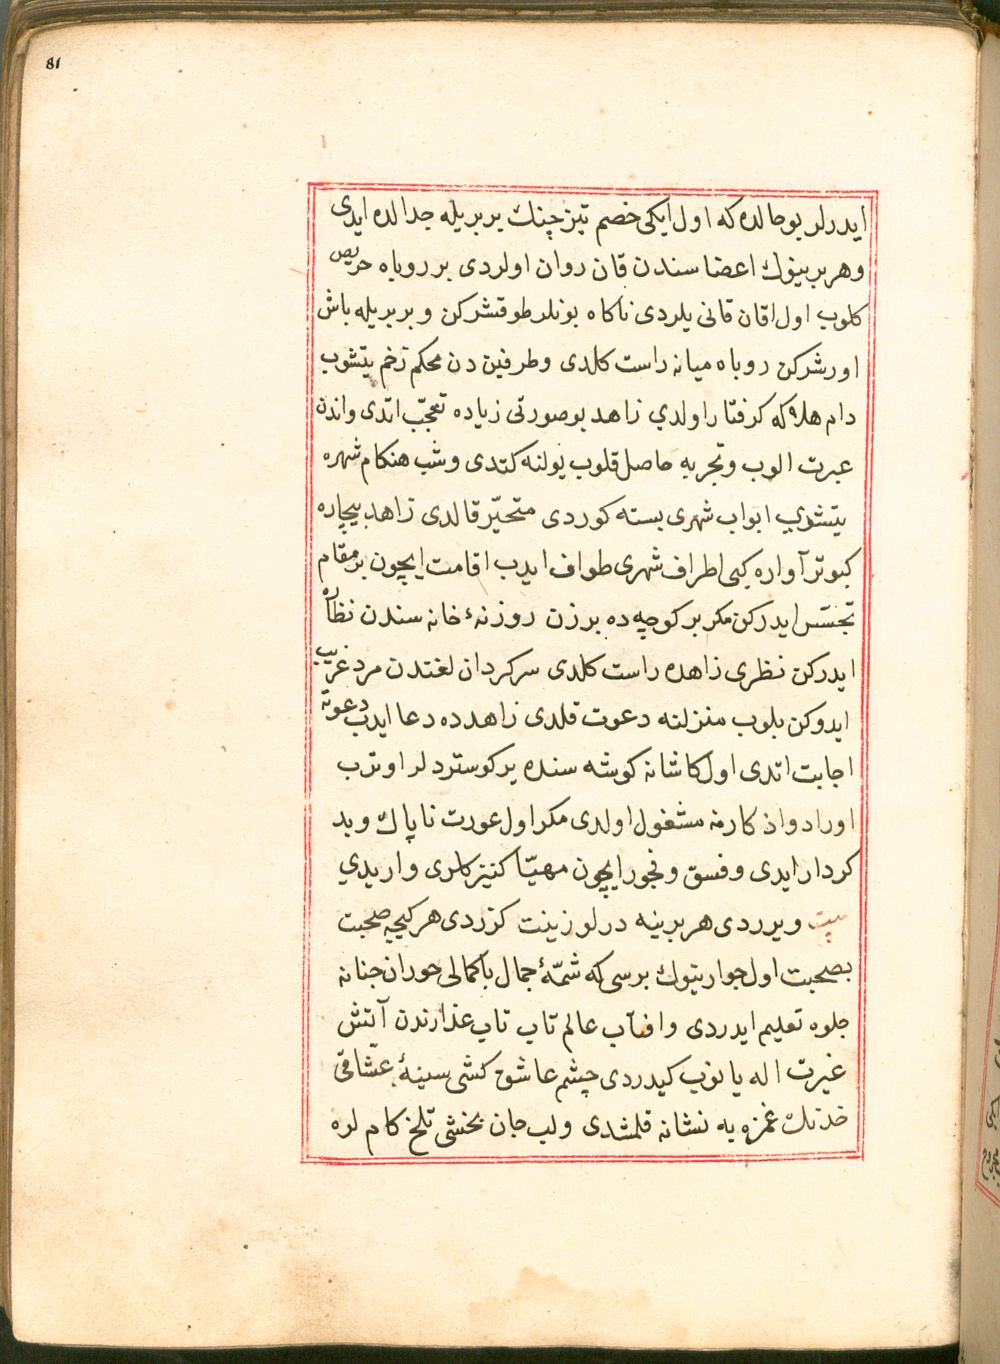 81
ایدرلر بو حالده که اول ایکی خصم تیز چنك بربریله جدالده ایدی
وهر برینوك اعضاسندن قان روان اولردی بر روباه حریص
كلوب اول اقان قانی یلردی ناكاه بونلر طوقشركن وبربریله باش
اورشركن روباه میانه راست كلدی وطرفین دن محكم زخم یتشوب
دام هلاكه كرفتار اولدی زاهد بو صورتی زیاده تعجّب اتدی واندن
عبرت الوب وتجربه حاصل قلوب یولنه كتدی وشب هنكام شهره
یتشوب ابواب شهری بسته كوردی متحیّر قالدی زاهد بیچاره
كبوتر آواره كبی اطراف شهری طواف ایدب اقامت ایچون بر مقام
تجسّس ایدركن مكر بر كوچه ده بر زن روزنهٔ خانه سندن نظاره
ایدركن نظری زاهده راست كلدی سركردان لغندن مرد غریب
ایدوكن بلوب منزلنه دعوت قلدی زاهد ده دعا ایدب دعوته
اجابت اتدی اول كاشانه كوشه سنده یر كوستردلر اوترب
اوراد واذكارنه مشغول اولدی مكر اول عورت ناپاك وبد
كردار ایدی وفسق وفجور ایچون مهیّا كنیزكلری واریدی
بیت ویرردی هر برینه درلو زینت كزردی هر كیجه صحبت
بصحبت اول جوارینوك برسی كه شمّهٔ جمال باكمالی حوران جنانه
جلوه تعلیم ایدردی وافتاب عالم تاب تاب عذارندن آتش
غیرت اله یانوب كیدردی چشم عاشق كشی سینهٔ عشّاقی
خدنك غمزه یه نشانه قلمشدی ولب جان بخشی تلخ كام لره